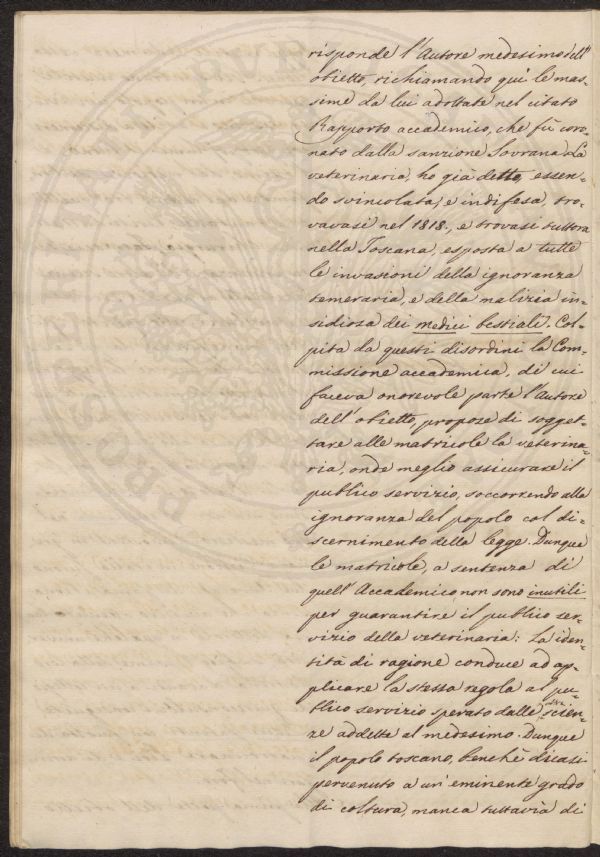 risponde l'Autore medesimo dell'
obietto, richiamando quì le mas=
sime da lui adottate nel citato
Rapporto accademico, che fù coro=
nato dalla sanzione Sovrana. La
veterinaria, ho già detto, essen=
do svincolata, e indifesa, tro=
vavasi nel 1818., e trovasi tuttora
nella Toscana, esposta a tutte
le invasioni della ignoranza
temeraria, e della malizia in=
sidiosa dei medici bestiali. Col=
pita da questi disordini la Com=
missione accademica, di cui
faceva onorevole parte l'Autore
dell'obietto, propose di sogget=
tare alle matricole la veterina=
ria, onde meglio assicurare il
publico servizio, soccorrendo alla
ignoranza del popolo col di=
scernimento della legge. Dunque
le matricole, a sentenza di
quell'Accademico, non sono inutili
per guarantire il publico ser=
vizio della veterinaria: La iden=
tità di ragione conduce ad ap=
plicare la stessa regola al pu=
blico servizio sperato dalle scien=
ze addette al medesimo. Dunque
il popolo toscano, benchè dicasi
pervenuto a un'eminente grado
di coltura, manca tuttavia di